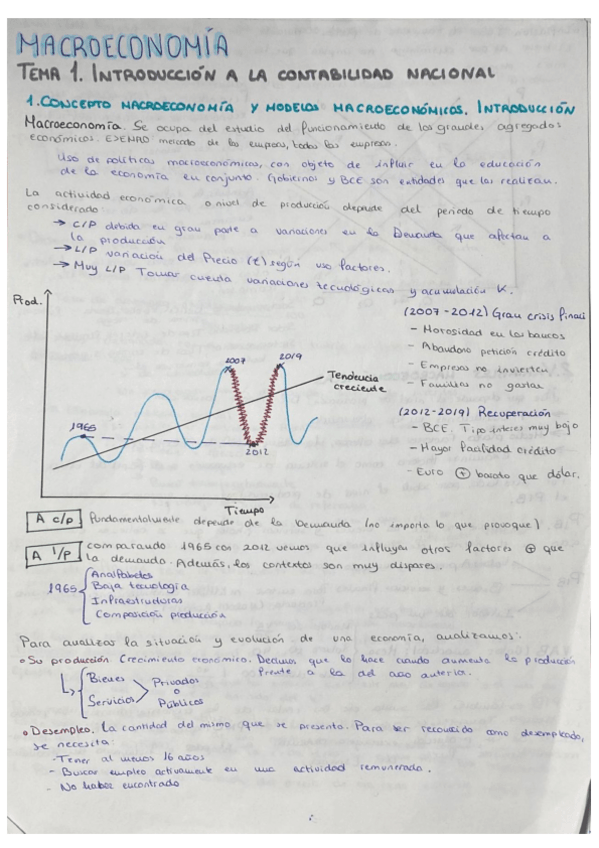 MACROECONOMÍA
TEMA 1. INTRODUCCIÓN A LA CONTABILIDAD NACIONAL
1. CONCEPTO MACROECONOMÍA Y MODELOS MACROECONÓMICOS. INTRODUCCIÓN
Macroeconomía. Se ocupa del estudio del funcionamiento de los grandes agregados
económicos. mercado de las empresas, todas las empresas.
Uso de políticas macroeconómicas, con objeto de influir en la educación
de la economía en conjunto. Gobiernos y BCE son entidades que las realizan.
La actividad económica o nivel de producción depende del periodo de tiempo
considerado
→ C/P debida en gran parte a variaciones en la Demanda que afectan a
la producción
→ L/P variación del Precio (t) según uso factores.
→ Muy L/P Tomar cuenta variaciones tecnológicas y acumulación K.
Prod.
2007
2019
Tendencia
creciente
1965
2012
Tiempo
(2007-2012) Gran crisis
- Morosidad en los bancos
- Abandono petición crédito
- Empresas no invierten
- Familias no gastan
(2012-2019) Recuperación
- BCE. Tipo interés muy bajo
- Mayor facilidad crédito
- Euro ⊕ barato que dólar.
A c/p fundamentalmente depende de la Demanda (no importa lo que provoque)
A l/p comparando 1965 con 2012 vemos que influyen otros factores ⊕ que
la demanda. Además, los contextos son muy dispares.
1965 { Analfabetos
Baja tecnología
Infraestructuras
Composición producción
Para analizar la situación y evolución de una economía, analizamos:
• Su producción Crecimiento económico. Decimos que lo hace cuando aumenta la producción
frente a la del año anterior.
Bienes
Servicios
Privados
o
Públicos
• Desempleo. La cantidad del mismo que se presenta. Para ser reconocido como desempleado,
se necesita:
- Tener al menos 16 años
- Buscar empleo activamente en una actividad remunerada.
- No haber encontrado